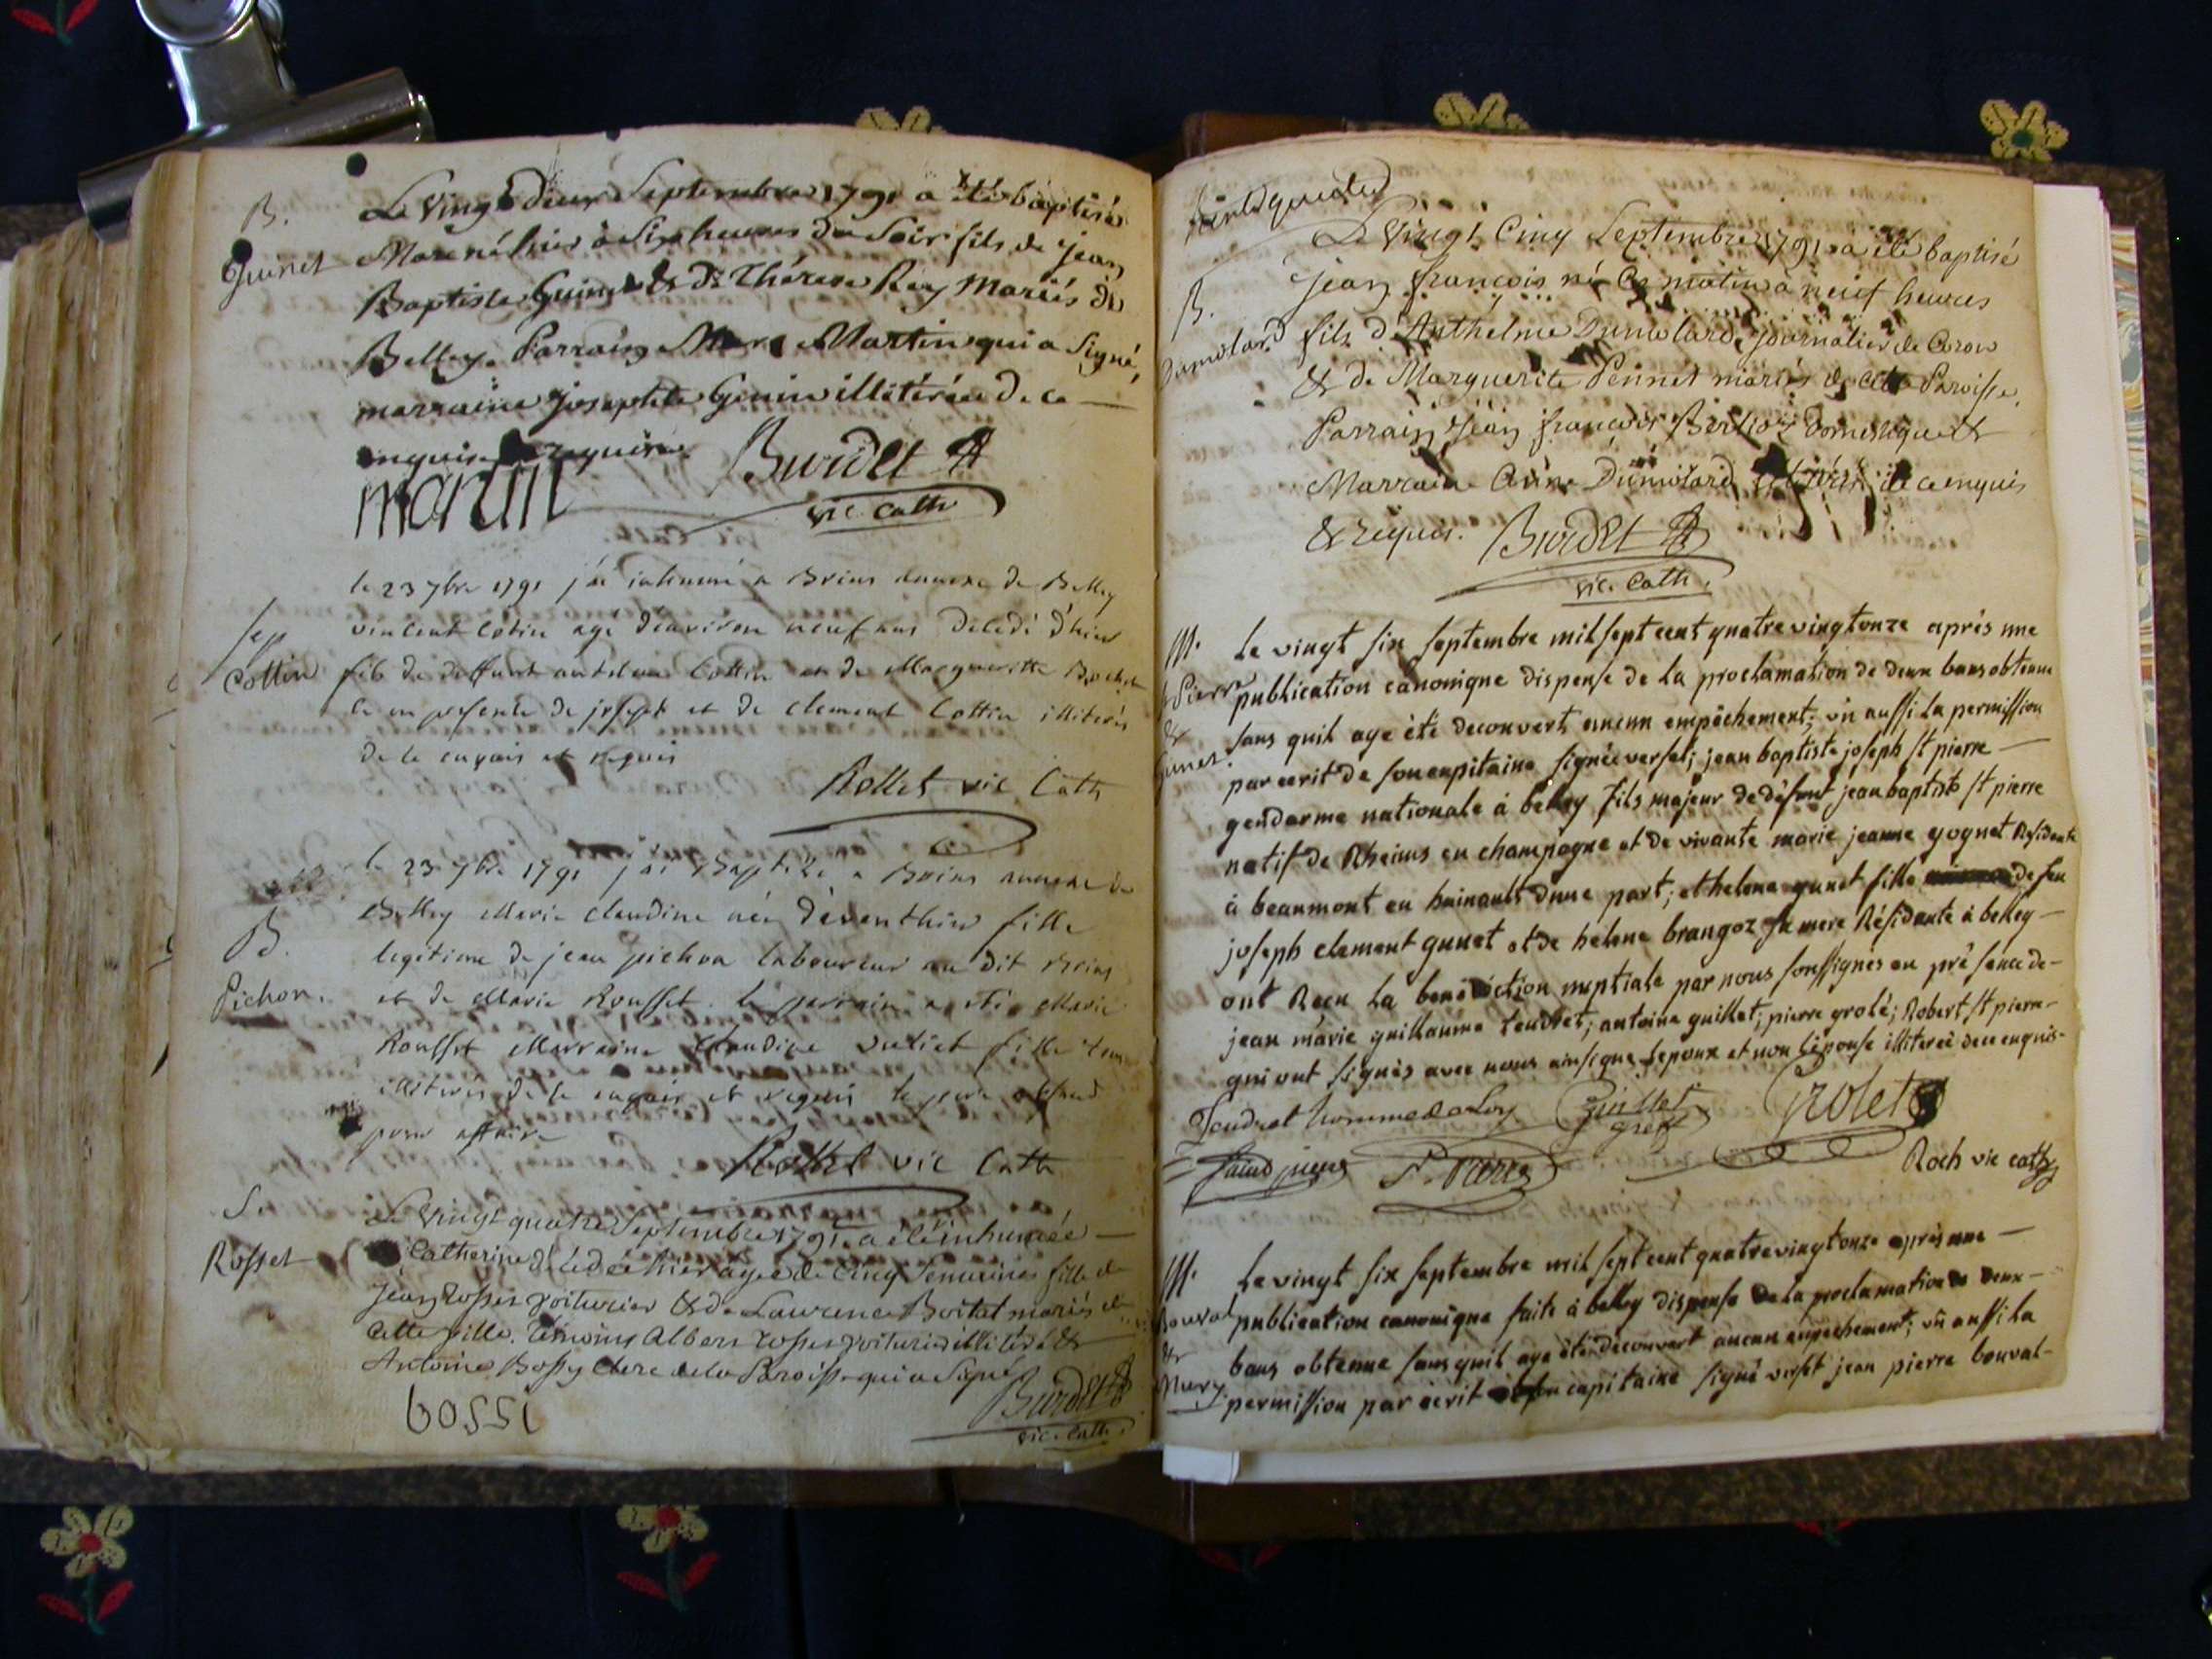 B.
Guinet
Le Vingt deux Septembre 1791 a été baptisé
Marc né hier à Six heures du Soir fils de Jean
Baptiste Guinet & de Thérese Rey Mariés de
Belley. Parrain Marc Martin qui a Signé,
marraine Josephte Genin illitérée de ce
enquise requise.
martin
Burdet
vic. cath
Sep
Cottin
le 23 7bre 1791 j'ai inhumé a Brens annexe de Belley
vincent Cotin agé d'environ neuf ans decedé d'hier
fils de deffunt antelme Cottin et de Margueritte
ce en presente de joseph et de clement Cottin illiterés
de ce enquis et requis
Rollet vic Cath
B.
Pichon.
le 23 7bre 1791 j'ai Baptisé a Brens annexe de
Belley Marie claudine née d'avant hier fille
legitime de jean pichon laboureur au dit Brens
et de Marie Rousset. le parrain a été Marie
Rousset Marraine Claudine fille tous
illiterés de ce enquis et requis le pere absent
pour affaire
Rollet vic Cath
S.
Rosset
Le Vingt quatre Septembre 1791. a été inhumée
Catherine décédée hier agée de Cinq Semaines fille de
Jean Rosset voiturier & de Laurence Boitat mariés de
Cette ville. Témoins Albert rosset voiturier illitéré &
Antoine Bossy Clerc de la Paroisse qui a Signé
BOSSI
Burdet
vic. cath.
B.
Dumolard
Le Vingt Cinq Septembre 1791 a été baptisé
Jean françois né Ce matin à neuf heures
fils d'Anthelme Dumolard, journalier de Coron
& de Marguerite Pennet mariés de cette Paroisse.
Parrain Jean françois Berlioz Domestique &
Marraine Dumolard de ce enquis
& requis. Burdet
vic. Cath.
M.
St Pierre
&
Gunet.
Le vingt six septembre mil sept cent quatre vingt onze après une
publication canonique dispense de la proclamation de deux bans obtenue
sans quil aye été decouvert aucun empêchement; vû aussi la permission
par ecrit de son capitaine signée verset; jean baptiste joseph st pierre
gendarme nationale à belley fils majeur de défunt jean baptiste st pierre
natif de Rheims en champagne et de vivante marie jeanne gognet Résidante
à beaumont en hainault dune part; et helene gunet fille de feu
joseph clement gunet et de helene brangoz sa mere Résidante à belley
ont Reçu la bénédiction nuptiale par nous soussignés en présence de
jean marie guillaume tendret; antoine guillet; pierre grolé; Robert st pierre
qui ont signés avec nous ainsi que lepoux et non lépouse illiterée de ce enquis
Tendret homme de Loy Guillet greff Grolet
Saint pierre Roch vic cath
M.
Bouval
&
Mury
Le vingt six septembre mil sept cent quatre vingt onze après une
publication canonique faite à belley dispense de la proclamation de deux
bans obtenue sans quil aye été decouvert aucun empechement; vû aussi la
permission par ecrit de son capitaine signé verset jean pierre bouval